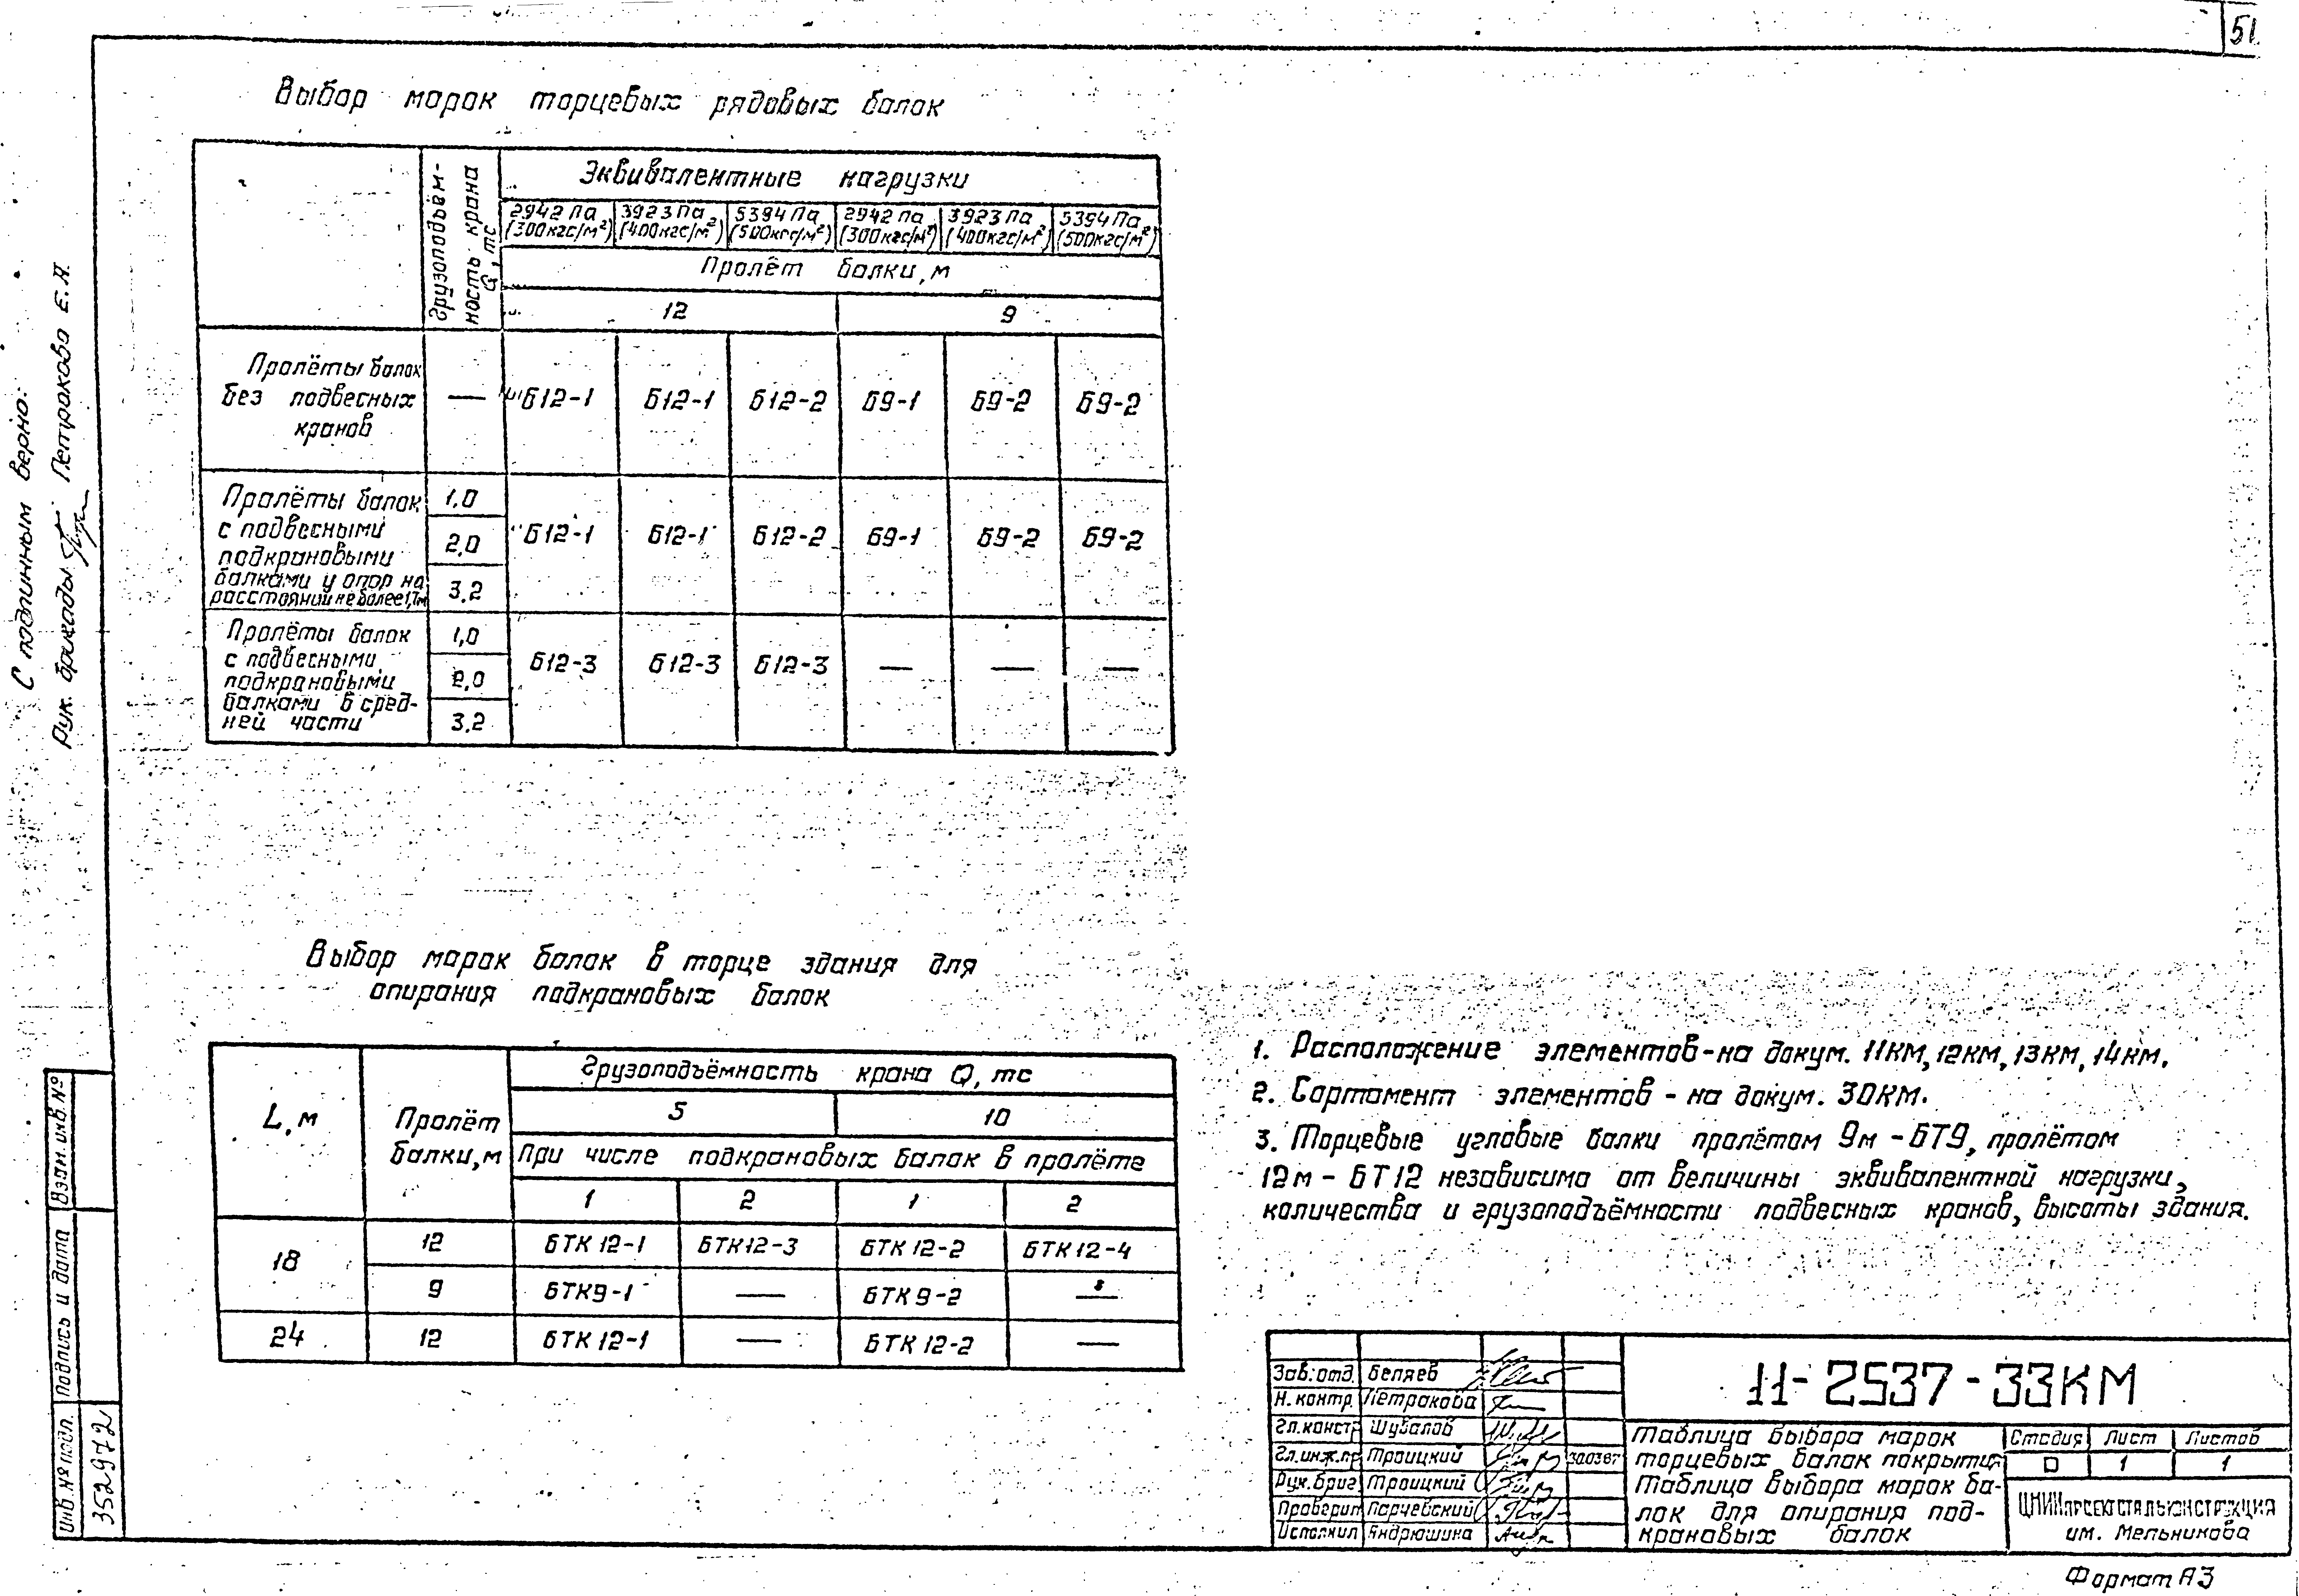 51
Выбор марок торцевых рядовых балок
Грузоподъём-
ность крана
Q, тс
Эквивалентные нагрузки
2942 Па (300кгс/м²) 3923 Па (400кгс/м²) 5394 Па (500кгс/м²) 2942 Па (300кгс/м²) 3923 Па (400кгс/м²) 5394 Па (500кгс/м²)
Пролёт балки, м
12 9
Пролёты балок
без подвесных
кранов
— Б12-1 Б12-1 Б12-2 Б9-1 Б9-2 Б9-2
Пролёты балок
с подвесными
подкрановыми
балками у опор на
расстоянии не более 1,7м
1,0
2,0
3,2
Б12-1 Б12-1 Б12-2 Б9-1 Б9-2 Б9-2
Пролёты балок
с подвесными
подкрановыми
балками в сред-
ней части
1,0
2,0
3,2
Б12-3 Б12-3 Б12-3 — — —
Выбор марок балок в торце здания для
опирания подкрановых балок
L, м
Пролёт
балки, м
Грузоподъёмность крана Q, тс
5 10
При числе подкрановых балок в пролёте
1 2 1 2
18 12 БТК12-1 БТК12-3 БТК12-2 БТК12-4
9 БТК9-1 — БТК9-2 —
24 12 БТК12-1 — БТК12-2 —
1. Расположение элементов-на докум. 11КМ, 12КМ, 13КМ, 14КМ.
2. Сортамент элементов - на докум. 30КМ.
3. Торцевые угловые балки пролётом 9м - БТ9, пролётом
12м - БТ12 независимо от величины эквивалентной нагрузки,
количества и грузоподъёмности подвесных кранов, высоты здания.
С подлинным верно:
Рук. бригады Петракова Е.А.
Взам. инв. №
Подпись и дата
Инв. № подл.
352972
Зав. отд. Беляев
Н. контр. Петракова
Гл. констр Шувалов
Гл. инж. пр Троицкий 300387
Рук. бриг. Троицкий
Проверил Парчевский
Исполнил Андрюшина
11-2537-33КМ
Таблица выбора марок
торцевых балок покрытия
Таблица выбора марок ба-
лок для опирания под-
крановых балок
Стадия Лист Листов
1 1
ЦНИИпроектстальконструкция
им. Мельникова
Формат А3